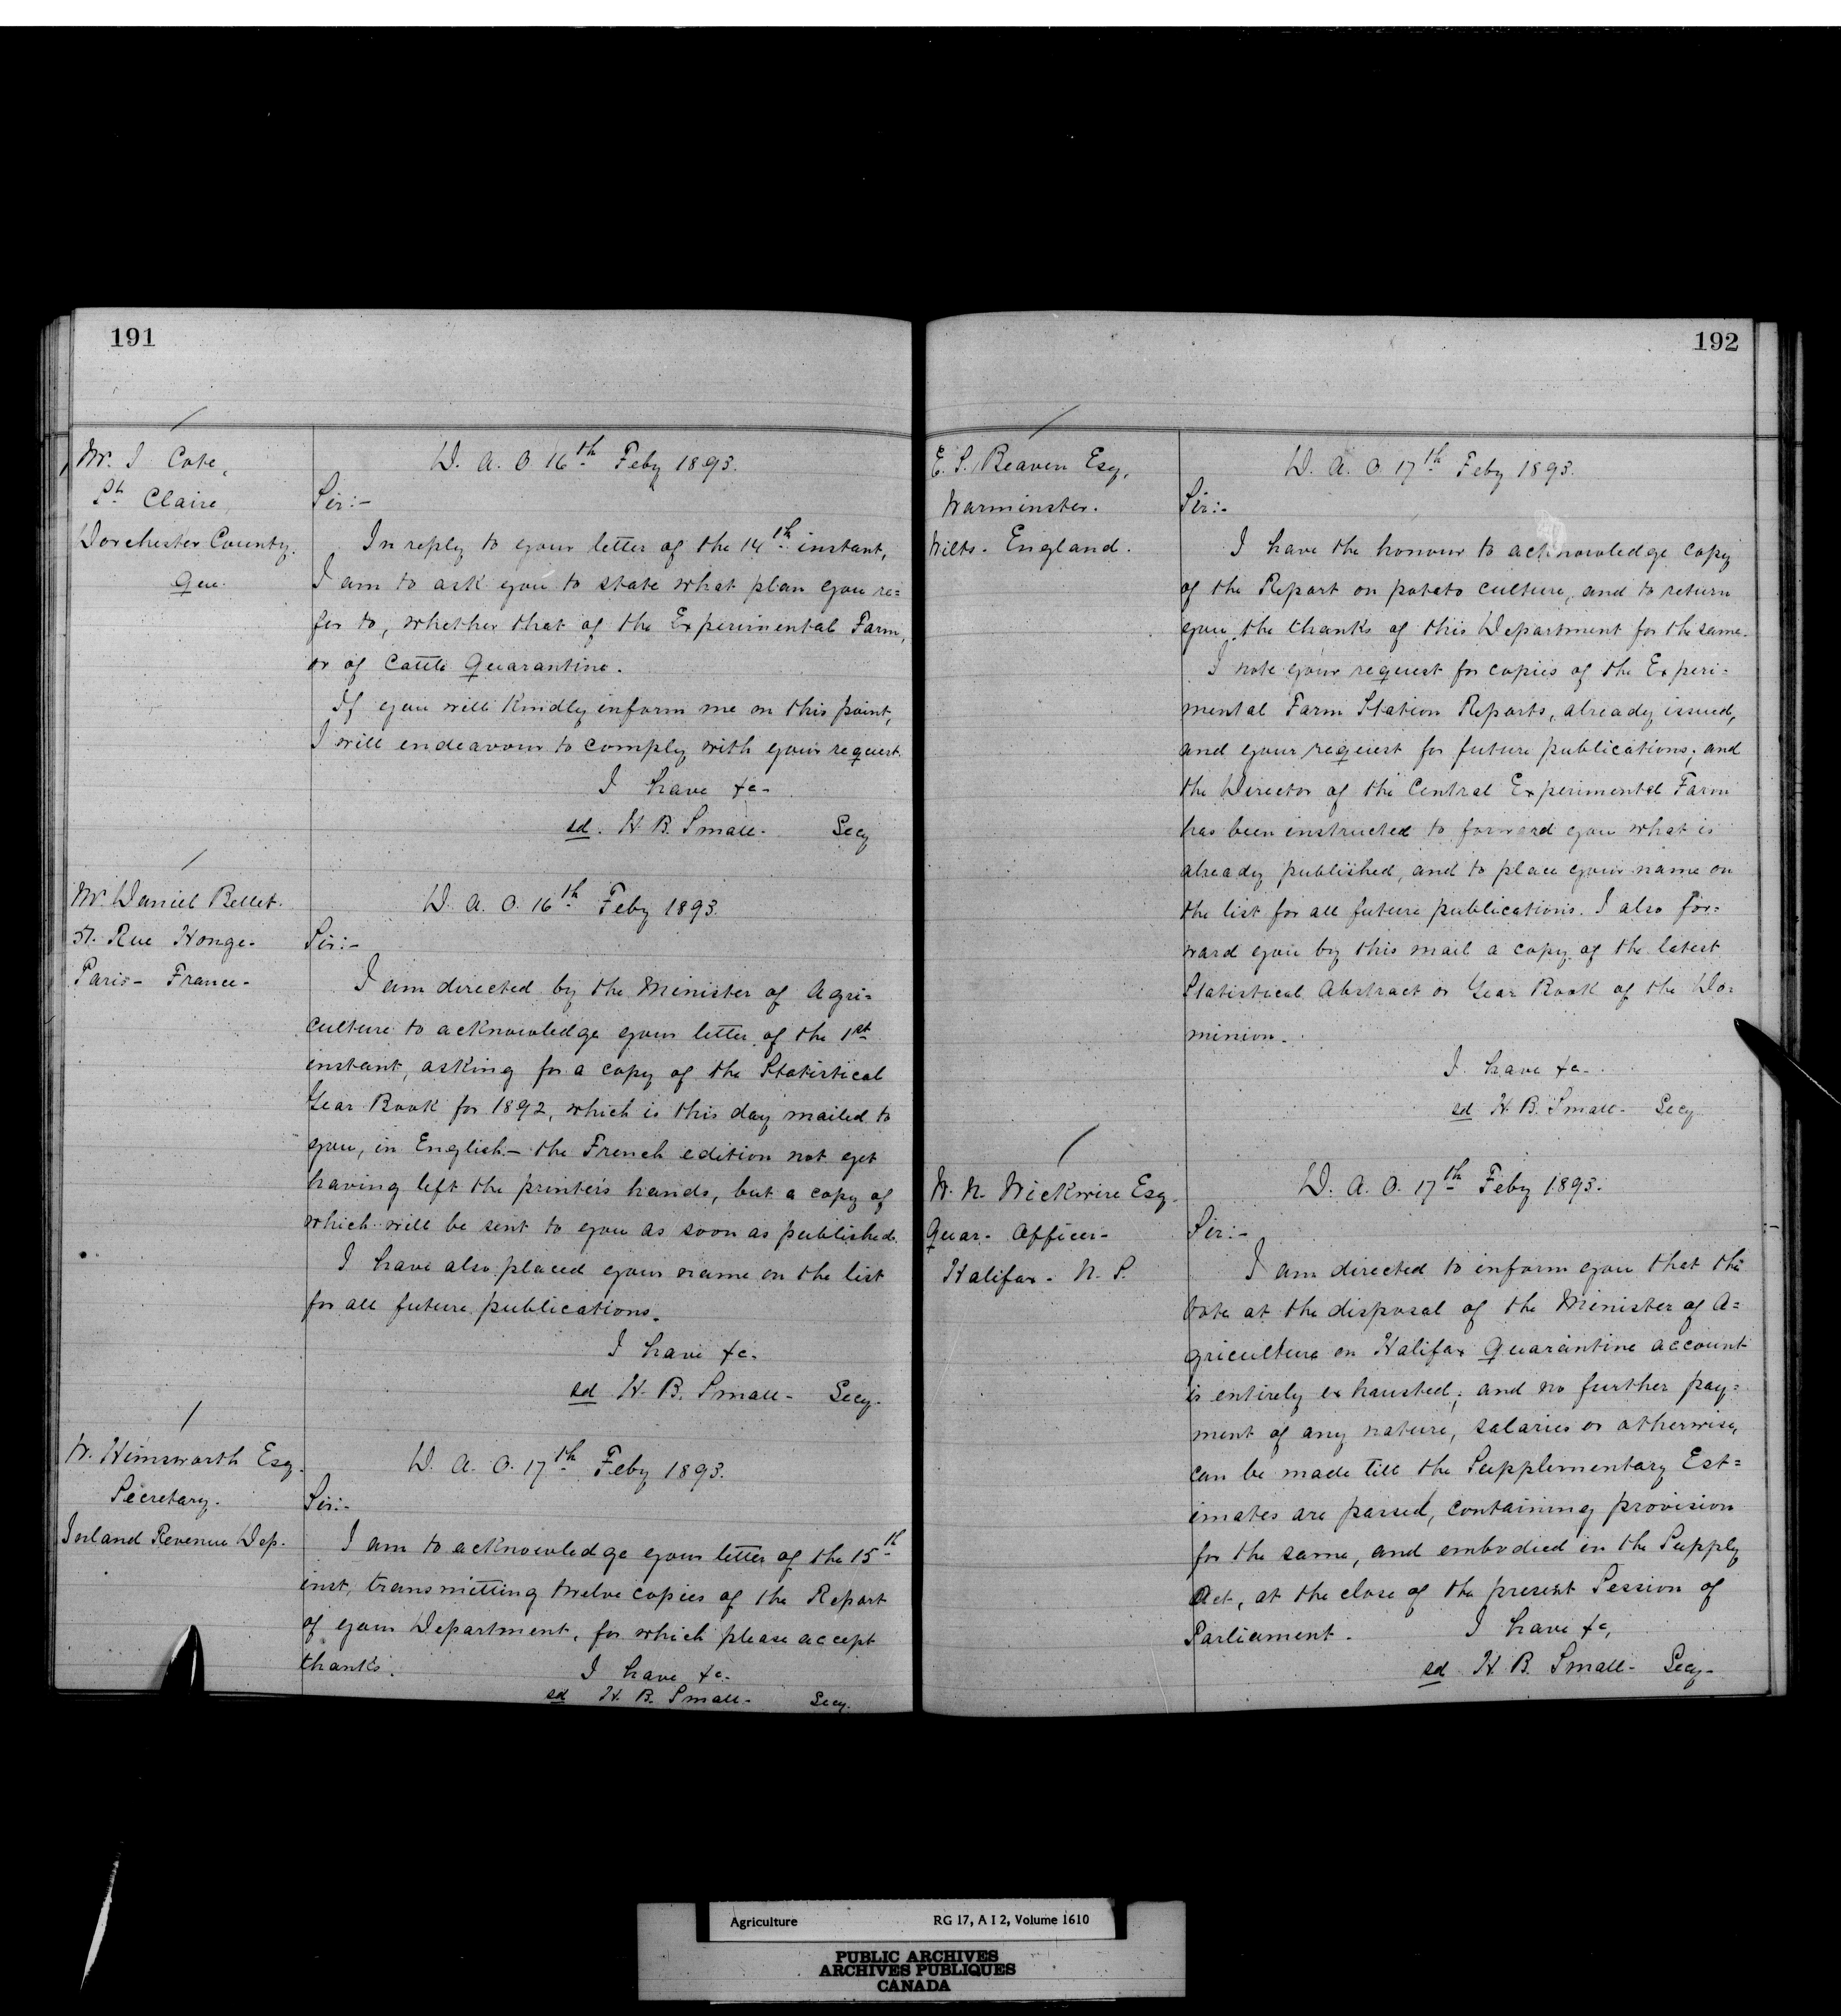 191
Mr. J Cote,
St Claire,
Dorchester County.
Que.
D. A. O. 16th Feby 1893.
Sir:-
In reply to your letter of the 14th instant,
I am to ask you to state what plan you re=
fer to, whether that of the Experimental Farm,
or of Cattle Quarantine.
If you will kindly inform me on this point,
I will endeavour to comply with your request.
I have &c-
sd. H. B. Small- Secy
Mr. Daniel Bellet.
Rue Monge-
Paris- France-
D. A. O. 16th Feby 1893.
Sir:-
I am directed by the Minister of Agri-
culture to acknowledge your letter of the 1st
instant, asking for a copy of the Statistical
Year Book for 1892, which is this day mailed to
you, in English- the French edition not yet
having left the printer's hands, but a copy of
which will be sent to you as soon as published.
I have also placed your name on the list
for all future publications.
I have &c.
sd H. B. Small- Secy.
W. Himsworth Esq.
Secretary.
Inland Revenue Dep.
D. A. O. 17th Feby 1893.
Sir:-
I am to acknowledge your letter of the 15th
inst, transmitting twelve copies of the Report
of your Department, for which please accept
thanks.
I have &c.
sd H. B. Small- Secy.
192
E. S. Beaven Esq,
Warminster.
Wilts. England.
D. A. O 17th Feby 1893.
Sir:-
I have the honour to acknowledge copy
of the Report on potato culture, and to return
you the thanks of this Department for the same.
I note your request for copies of the Experi-
mental Farm Station Reports, already issued,
and your request for future publications; and
the Director of the Central Experimental Farm
has been instructed to forward you what is
already published, and to place your name on
the list for all future publications. I also for=
ward you by this mail a copy of the latest
Statistical Abstract or Year Book of the Do-
minion.
I have &c-
sd H. B. Small- Secy
W. N. Wickwire Esq.
Quar- Officer-
Halifax- N. S.
D. A. O. 17th Feby 1893.
Sir:-
I am directed to inform you that the
Vote at the disposal of the Minister of A=
griculture on Halifax Quarantine account
is entirely exhausted; and no further pay=
ment of any nature, salaries or otherwise,
can be made till the Supplementary Est=
imates are passed, containing provision
for the same, and embodied in the Supply
Act, at the close of the present Session of
Parliament.
I have &c,
sd H. B. Small- Secy-
Agriculture RG 17, A I 2, Volume 1610
PUBLIC ARCHIVES
ARCHIVES PUBLIQUES
CANADA